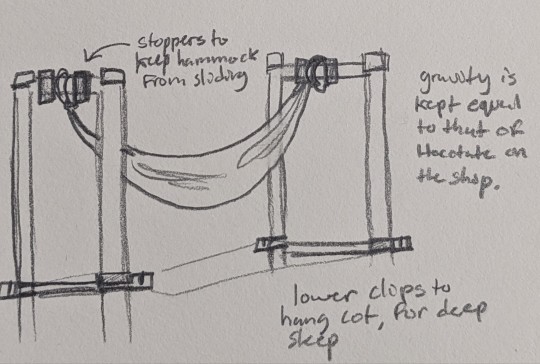 stoppers to
keep hammock
from sliding
gravity is
kept equal
to that of
Hocotate on
the ship.
lower clips to
hang cot, for deep
sleep